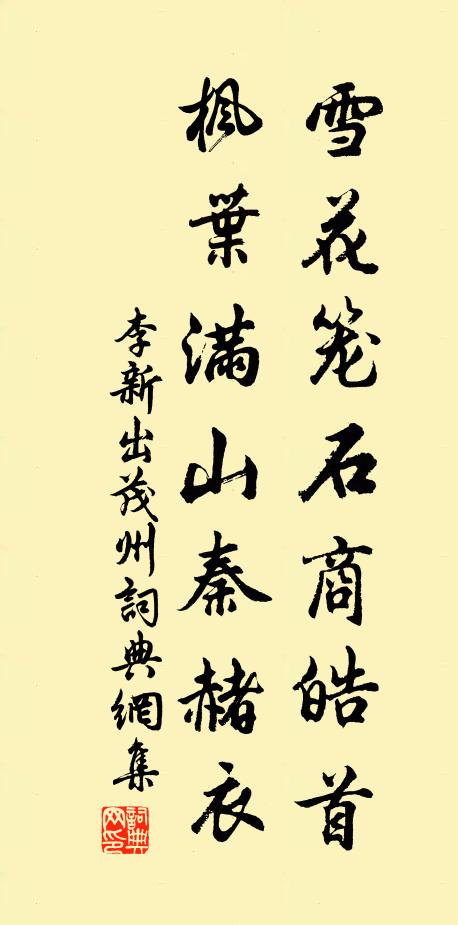 雪花笼石商皓首
枫葉滿山秦赭衣
李新出茂州詞典網集
詞典网印